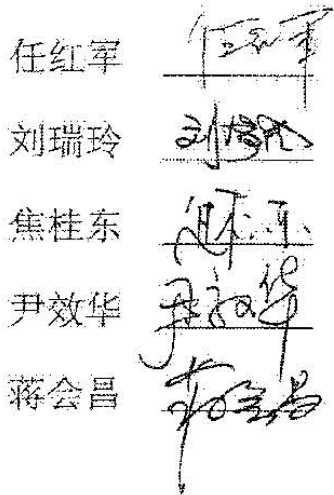 任红军 任红军
刘瑞玲 刘瑞玲
焦桂东
尹效华 尹效华
蒋会昌 蒋会昌